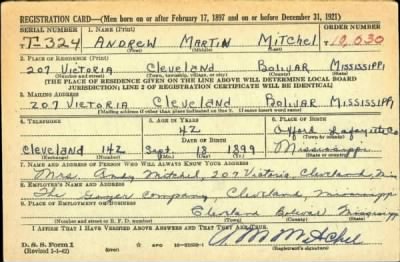 REGISTRATION CARD—(Men born on or after February 17, 1897 and on or before December 31, 1921)
SERIAL NUMBER 1. NAME (Print) ORDER NUMBER
T-324 ANDREW MARTIN MITCHEL 10,030
(First) (Middle) (Last)
2. PLACE OF RESIDENCE (Print)
207 VICTORIA CLEVELAND BOLIVAR MISSISSIPPI
(Number and street) (Town, township, village, or city) (County) (State)
(THE PLACE OF RESIDENCE GIVEN ON THE LINE ABOVE WILL DETERMINE LOCAL BOARD
JURISDICTION; LINE 2 OF REGISTRATION CERTIFICATE WILL BE IDENTICAL)
3. MAILING ADDRESS
207 VICTORIA CLEVELAND BOLIVAR MISSISSIPPI
(Mailing address if other than place indicated on line 2. If same insert word same)
4. TELEPHONE 5. AGE IN YEARS 6. PLACE OF BIRTH
42 Oxford Lafayette Co
DATE OF BIRTH (Town or county)
Cleveland 142 Sept. 18 1899 Mississippi
(Exchange) (Number) (Mo.) (Day) (Yr.) (State or country)
7. NAME AND ADDRESS OF PERSON WHO WILL ALWAYS KNOW YOUR ADDRESS
Mrs. Andy Mitchel, 207 Victoria, Cleveland, Miss
8. EMPLOYER'S NAME AND ADDRESS
The Company, Cleveland, Mississippi
9. PLACE OF EMPLOYMENT OR BUSINESS
Cleveland Bolivar Mississippi
(Number and street or R. F. D. number) (Town) (County) (State)
I AFFIRM THAT I HAVE VERIFIED ABOVE ANSWERS AND THAT THEY ARE TRUE.
D. S. S. Form 1
(Revised 1-1-42) GPO
A M Mitchel
(Registrant's signature)